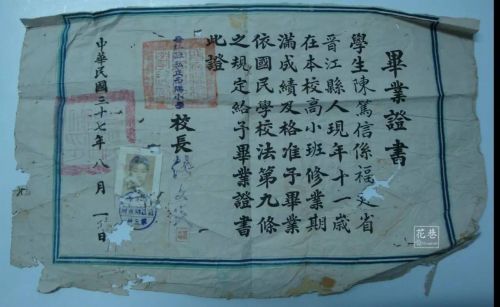 畢業證書
學生陳篤信係福建省
晉江縣人現年十一歲
在本校高小班修業期
滿成績及格准予畢業
依國民學校法第九條
之規定給予畢業證書
此證
小學
校長
中華民國三十七年八月 日
花巷